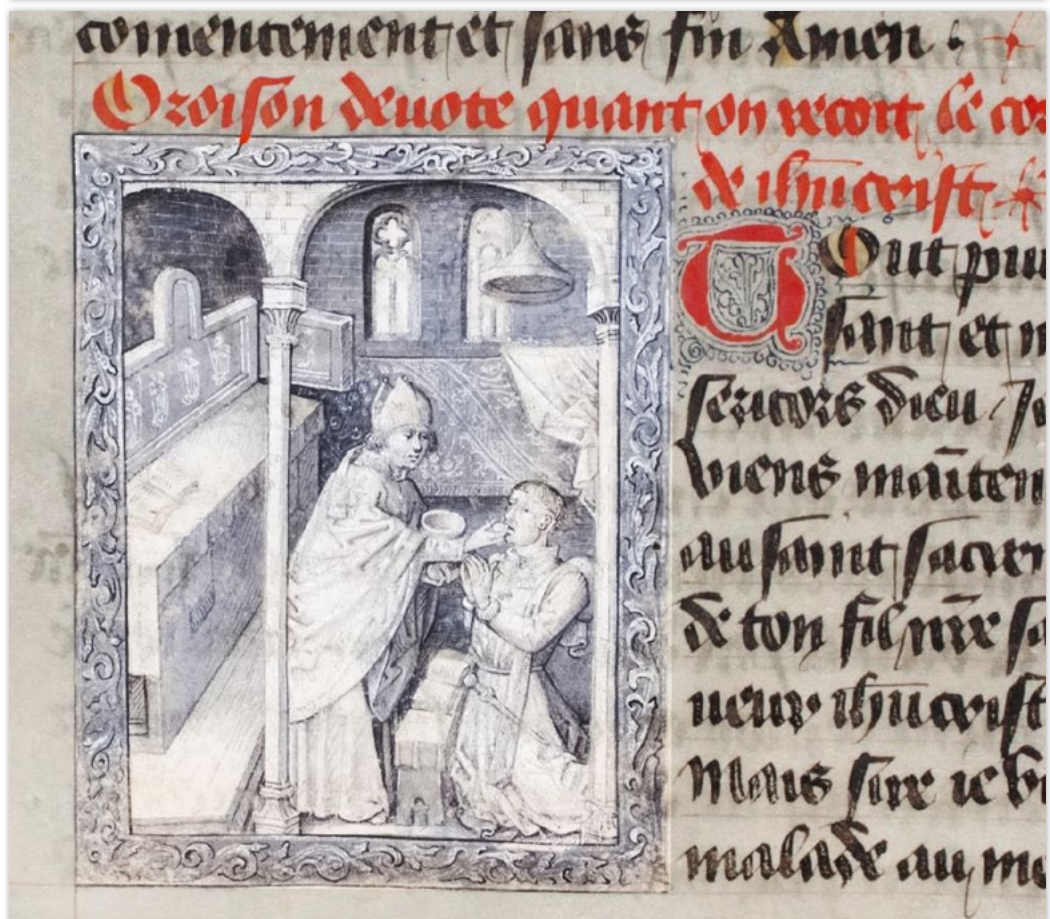 comencement et sans fin Amen .
Oroison deuote quant on recoit le cor
de ihūcrist
Tout puis
sant et m
sericors dieu . Je
viens mainten
au saint sacre
de ton fil nr̄e se
neur ihūcrist
Mais sire ie v
malade au me